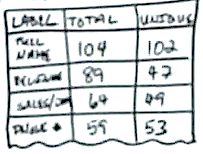 LABEL TOTAL UNIQUE
FULL
NAME 104 102
REVENUE 89 47
SALES/ 64 49
PHONE # 59 53